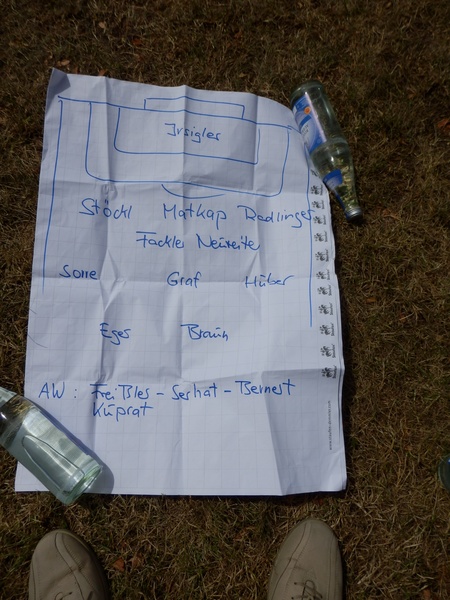 Irsigler
Stöckl Matkap Radlinger
Fackler Neureite
Sone Graf Huber
Eges Braun
AW: Freißles - Serhat - Bernest
Küprat